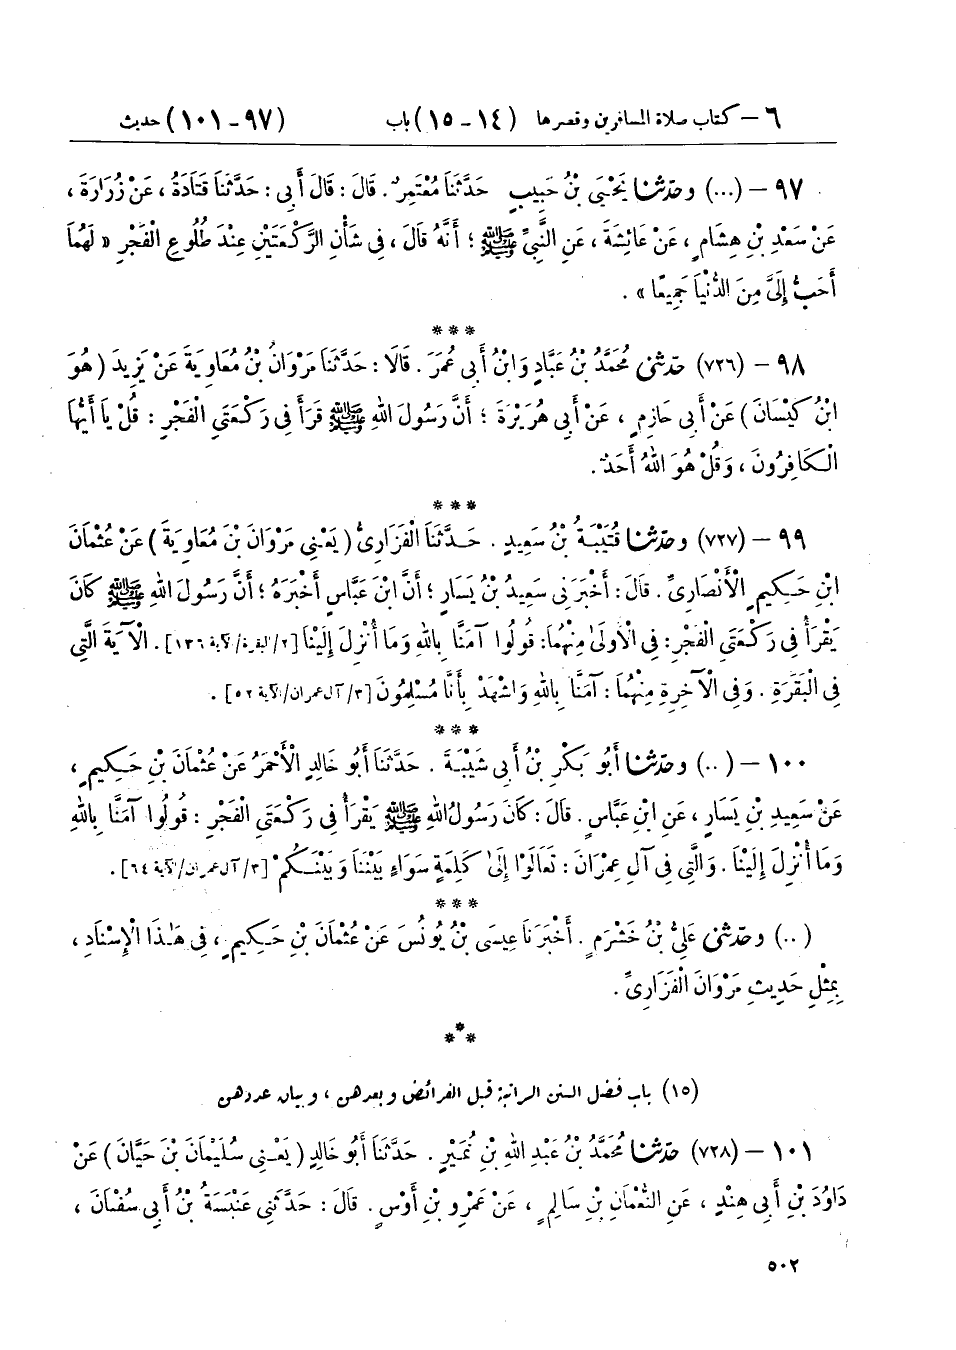 ٦ – كتاب صلاة المسافرين وقصرها (١٤ – ١٥) باب (٩٧ – ١٠١) حديث
٩٧ – (...) وحدثنا يَحْيَىٰ بْنُ حَبِيبٍ حَدَّثَنَا مُعْتَمِرٌ. قَالَ: قَالَ أَبِي: حَدَّثَنَا قَتَادَةُ، عَنْ زُرَارَةَ،
عَنْ سَعْدِ بْنِ هِشَامٍ، عَنْ عَائِشَةَ، عَنِ النَّبِيِّ ﷺ؛ أَنَّهُ قَالَ، فِي شَأْنِ الرَّكْعَتَيْنِ عِنْدَ طُلُوعِ الْفَجْرِ « لَهُمَا
أَحَبُّ إِلَيَّ مِنَ الدُّنْيَا جَمِيعًا ».
* * *
٩٨ – (٧٢٦) حدثني مُحَمَّدُ بْنُ عَبَّادٍ وَابْنُ أَبِي عُمَرَ. قَالَا: حَدَّثَنَا مَرْوَانُ بْنُ مُعَاوِيَةَ عَنْ يَزِيدَ (هُوَ
ابْنُ كَيْسَانَ) عَنْ أَبِي حَازِمٍ، عَنْ أَبِي هُرَيْرَةَ؛ أَنَّ رَسُولَ اللهِ ﷺ قَرَأَ فِي رَكْعَتَيِ الْفَجْرِ: قُلْ يَا أَيُّهَا
الْكَافِرُونَ، وَقُلْ هُوَ اللهُ أَحَدٌ.
* * *
٩٩ – (٧٢٧) وحدثنا قُتَيْبَةُ بْنُ سَعِيدٍ. حَدَّثَنَا الْفَزَارِيُّ (يَعْنِي مَرْوَانَ بْنَ مُعَاوِيَةَ) عَنْ عُثْمَانَ
ابْنِ حَكِيمٍ الْأَنْصَارِيِّ. قَالَ: أَخْبَرَنِي سَعِيدُ بْنُ يَسَارٍ؛ أَنَّ ابْنَ عَبَّاسٍ أَخْبَرَهُ؛ أَنَّ رَسُولَ اللهِ ﷺ كَانَ
يَقْرَأُ فِي رَكْعَتَيِ الْفَجْرِ: فِي الْأُولَىٰ مِنْهُمَا: قُولُوا آمَنَّا بِاللهِ وَمَا أُنْزِلَ إِلَيْنَا [٢/البقرة/الآية ١٣٦]. الْآيَةَ الَّتِي
فِي الْبَقَرَةِ. وَفِي الْآخِرَةِ مِنْهُمَا: آمَنَّا بِاللهِ وَاشْهَدْ بِأَنَّا مُسْلِمُونَ [٣/آل عمران/الآية ٥٢].
* * *
١٠٠ – (..) وحدثنا أَبُو بَكْرِ بْنُ أَبِي شَيْبَةَ. حَدَّثَنَا أَبُو خَالِدٍ الْأَحْمَرُ عَنْ عُثْمَانَ بْنِ حَكِيمٍ،
عَنْ سَعِيدِ بْنِ يَسَارٍ، عَنِ ابْنِ عَبَّاسٍ. قَالَ: كَانَ رَسُولُ اللهِ ﷺ يَقْرَأُ فِي رَكْعَتَيِ الْفَجْرِ: قُولُوا آمَنَّا بِاللهِ
وَمَا أُنْزِلَ إِلَيْنَا. وَالَّتِي فِي آلِ عِمْرَانَ: تَعَالَوْا إِلَىٰ كَلِمَةٍ سَوَاءٍ بَيْنَنَا وَبَيْنَكُمْ [٣/آل عمران/الآية ٦٤].
* * *
(..) وحدثني عَلِيُّ بْنُ خَشْرَمٍ. أَخْبَرَنَا عِيسَى بْنُ يُونُسَ عَنْ عُثْمَانَ بْنِ حَكِيمٍ، فِي هَٰذَا الْإِسْنَادِ،
بِمِثْلِ حَدِيثِ مَرْوَانَ الْفَزَارِيِّ.
* * *
(١٥) باب فضل السنن الراتبة قبل الفرائض وبعدهن، وبيان عددهن
١٠١ – (٧٢٨) حدثنا مُحَمَّدُ بْنُ عَبْدِ اللهِ بْنِ نُمَيْرٍ. حَدَّثَنَا أَبُو خَالِدٍ (يَعْنِي سُلَيْمَانَ بْنَ حَيَّانَ) عَنْ
دَاوُدَ بْنِ أَبِي هِنْدٍ، عَنِ النُّعْمَانِ بْنِ سَالِمٍ، عَنْ عَمْرِو بْنِ أَوْسٍ. قَالَ: حَدَّثَنِي عَنْبَسَةُ بْنُ أَبِي سُفْيَانَ،
٥٠٢